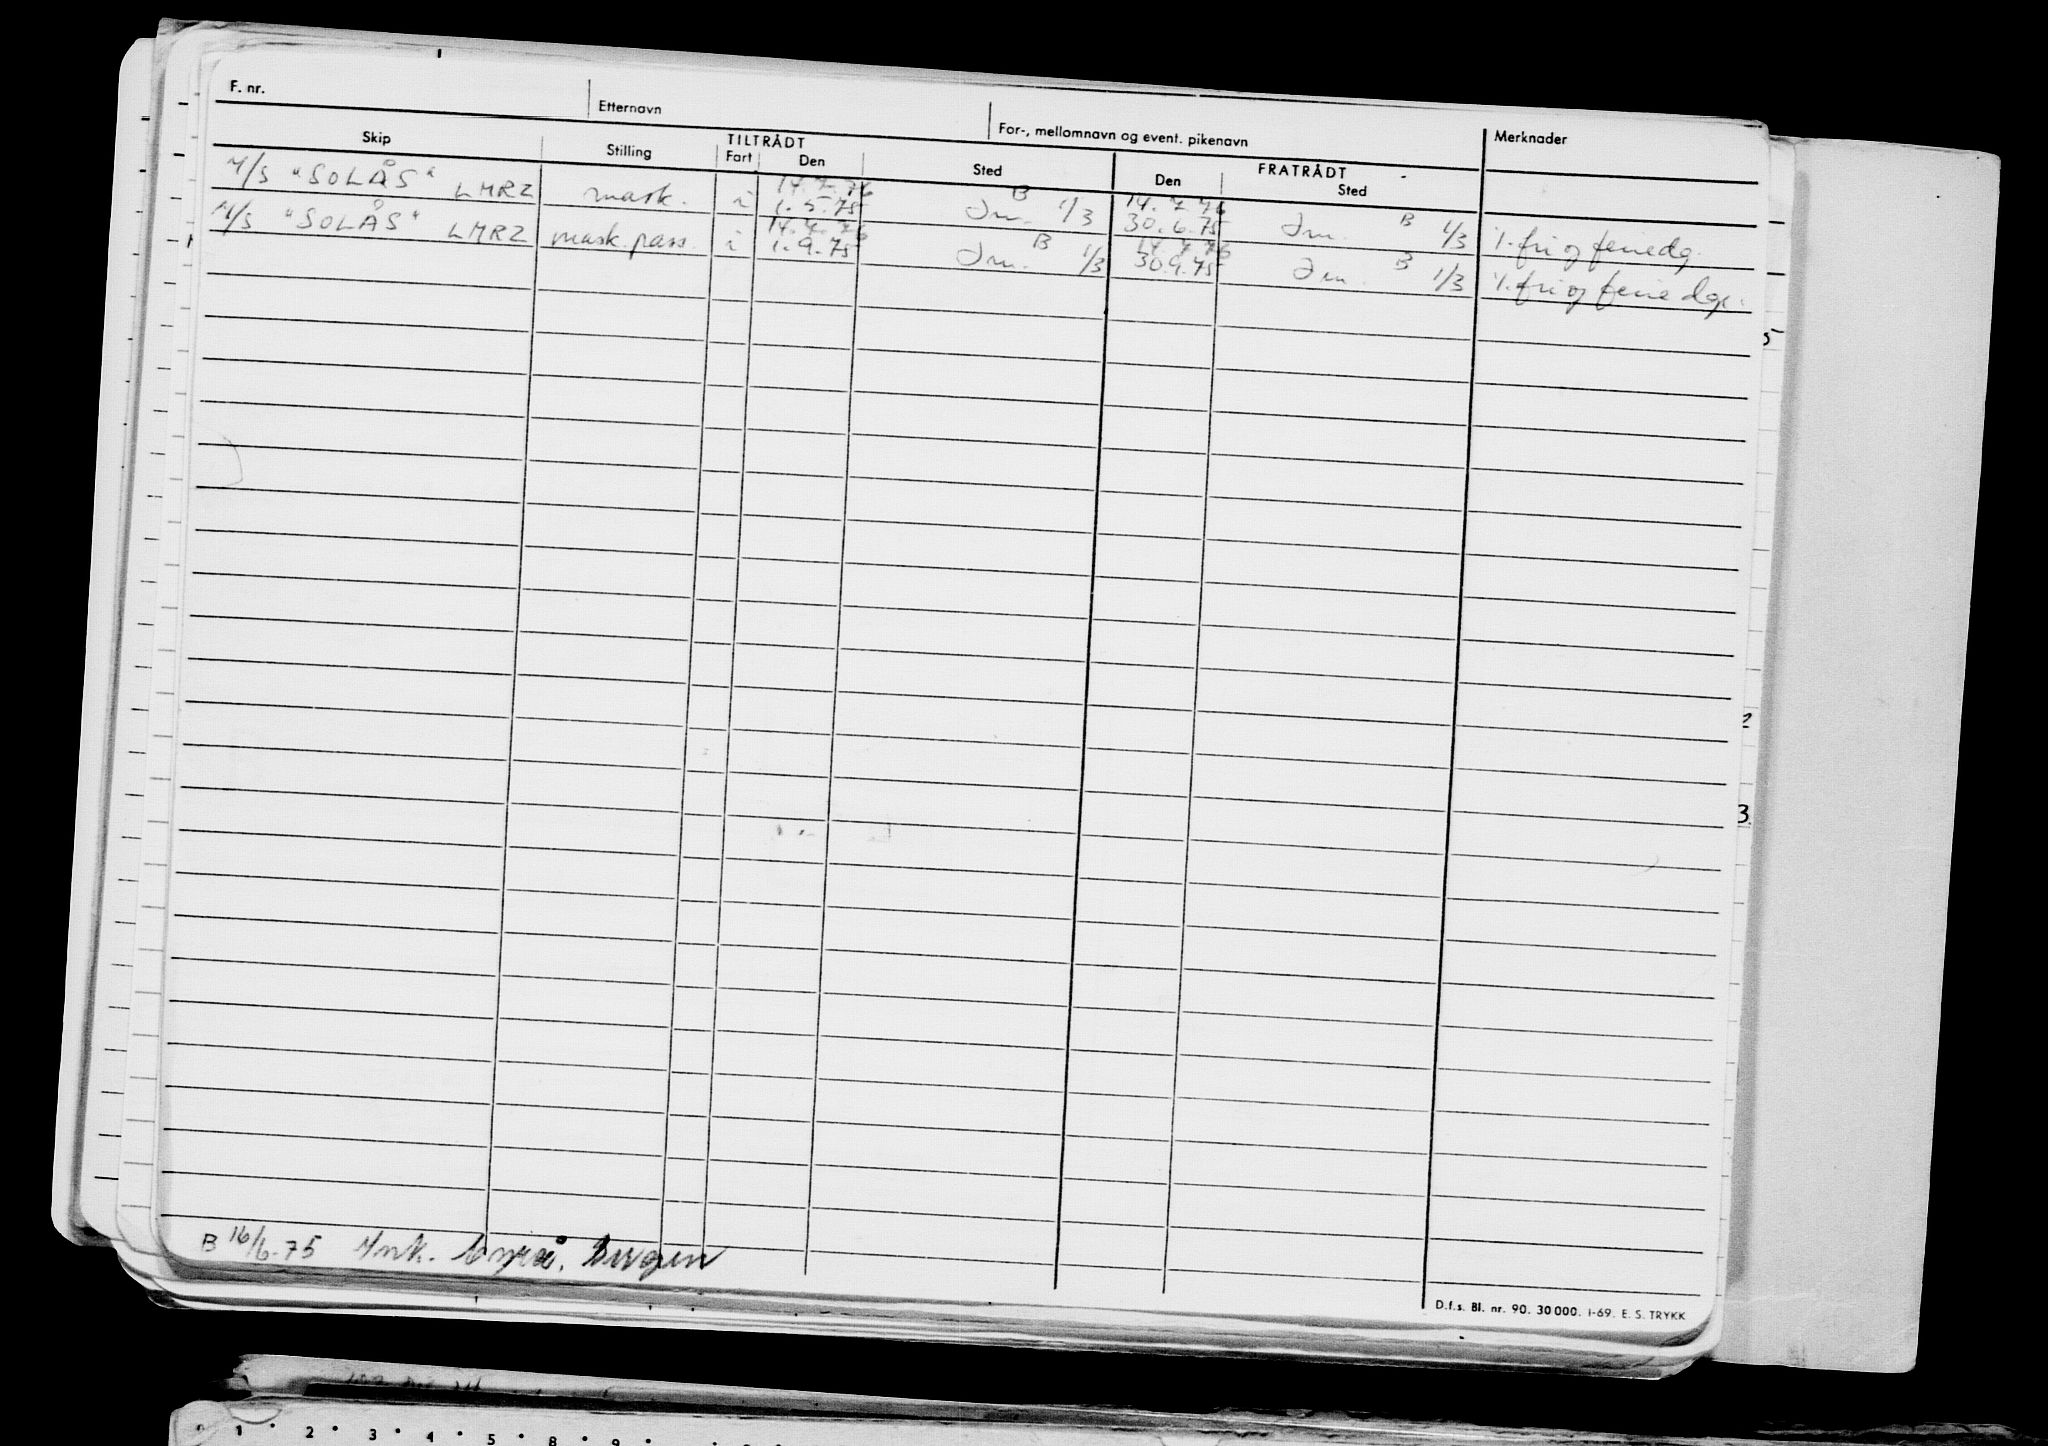 F. nr. Etternavn For-, mellomnavn og event. pikenavn Merknader
Skip Stilling TILTRÅDT FRATRÅDT
Fart Den Sted Den Sted
14.7.76 B 14.7.76 B
M/S "SOLÅS" LMRZ mask. i 1.5.75 1/3 30.6.75 1/3 fri og feriedg.
B B
M/S "SOLÅS" LMRZ mask.pass. i 1.9.75 1/3 30.9.75 1/3 fri og feriedgr.
5
2
3.
B 16/6-75 Bergen
D.f.s. Bl. nr. 90. 30 000. 1-69. E. S. TRYKK
1 2 3 4 5 8 9